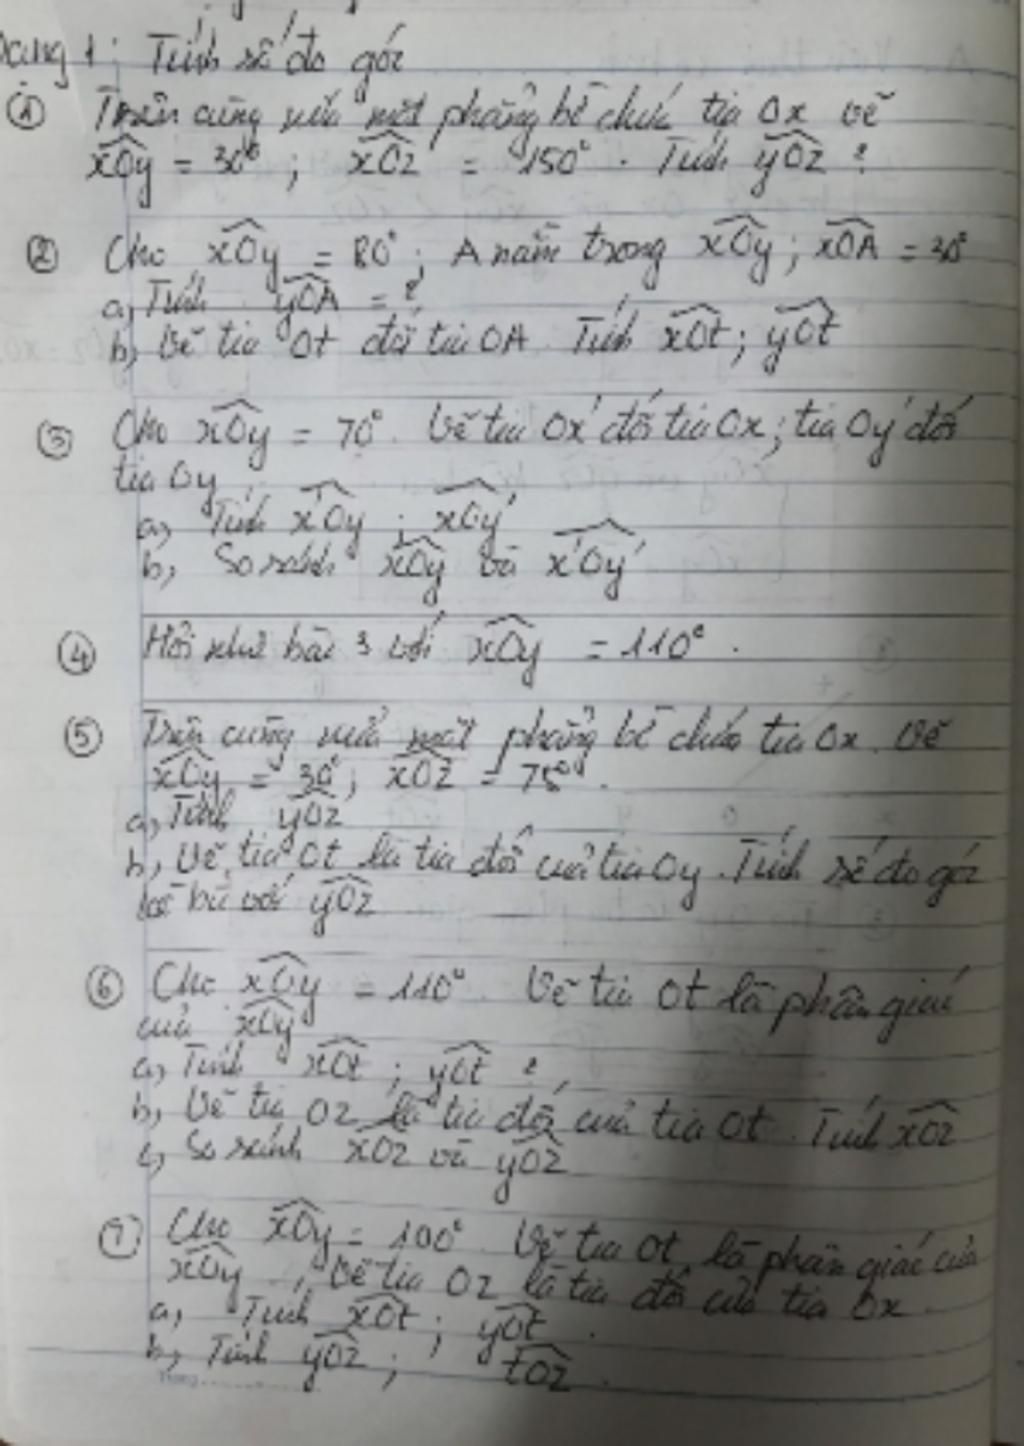 Dạng 1: Tính số đo góc
① Trên cùng nửa mặt phẳng bờ chứa tia Ox vẽ
xOy = 30°; xOz = 150°. Tính yOz ?
② Cho xOy = 80°; A nằm trong xOy; xOA = 30°
a, Tính yOA = ?
b, Vẽ tia Ot đối tia OA Tính xOt; yOt
③ Cho xOy = 70°. Vẽ tia Ox' đối tia Ox; tia Oy' đối
tia Oy
a, Tính x'Oy; xOy'
b, So sánh xOy và x'Oy'
④ Hỏi như bài 3 với xOy = 110°.
⑤ Trên cùng nửa mặt phẳng bờ chứa tia Ox. Vẽ
xOy = 30°; xOz = 75°.
a, Tính yOz
b, Vẽ tia Ot là tia đối của tia Oy. Tính số đo góc
kề bù với yOz
⑥ Cho xOy = 110°. Vẽ tia Ot là phân giác
của xOy
a, Tính xOt; yOt ?
b, Vẽ tia Oz là tia đối của tia Ot. Tính xOz
c, So sánh xOz và yOz
⑦ Cho xOy = 100°. Vẽ tia Ot là phân giác của
xOy, Vẽ tia Oz là tia đối của tia Ox.
a, Tính xOt; yOt.
b, Tính yOz; tOz.